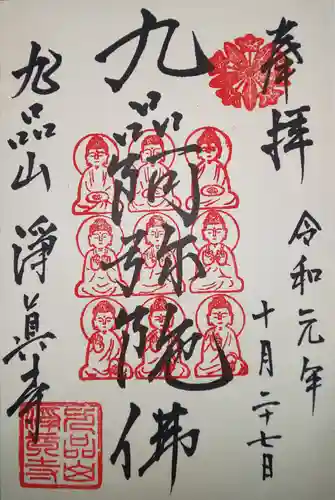 奉拝
令和元年
十月二十七日
九品阿弥陀佛
九品山
淨真寺
九品山
淨真寺